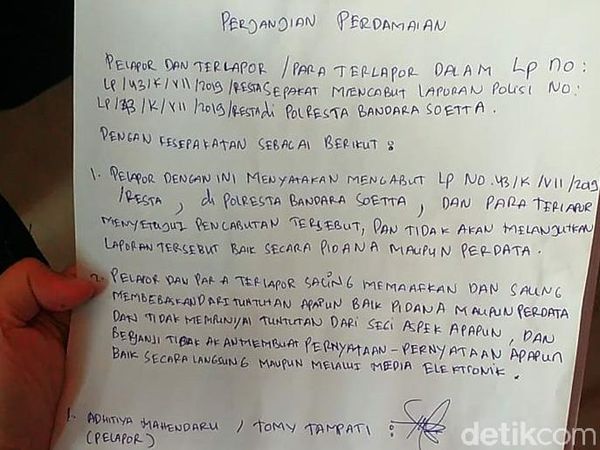 PERJANJIAN PERDAMAIAN
PELAPOR DAN TERLAPOR /PARA TERLAPOR DALAM LP NO:
LP/43/K/VII/2019/RESTA SEPAKAT MENCABUT LAPORAN POLISI NO:
LP/43/K/VII/2019/RESTA di POLRESTA BANDARA SOETTA.
DENGAN KESEPAKATAN SEBAGAI BERIKUT :
1. PELAPOR DENGAN INI MENYATAKAN MENCABUT LP NO. 43/K/VII/2019
/RESTA, di POLRESTA BANDARA SOETTA, DAN PARA TERLAPOR
MENYETUJUI PENCABUTAN TERSEBUT, DAN TIDAK AKAN MELANJUTKAN
LAPORAN TERSEBUT BAIK SECARA PIDANA MAUPUN PERDATA.
2. PELAPOR DAN PARA TERLAPOR SALING MEMAAFKAN DAN SALING
MEMBEBASKAN DARI TUNTUTAN APAPUN BAIK PIDANA MAUPUN PERDATA
DAN TIDAK MEMPUNYAI TUNTUTAN DARI SEGI ASPEK APAPUN, DAN
BERJANJI TIDAK AKAN MEMBUAT PERNYATAAN-PERNYATAAN APAPUN
BAIK SECARA LANGSUNG MAUPUN MELALUI MEDIA ELEKTRONIK.
1. ADHITIYA MAHENDARU / TOMY TAMPATI :
(PELAPOR)
detikcom